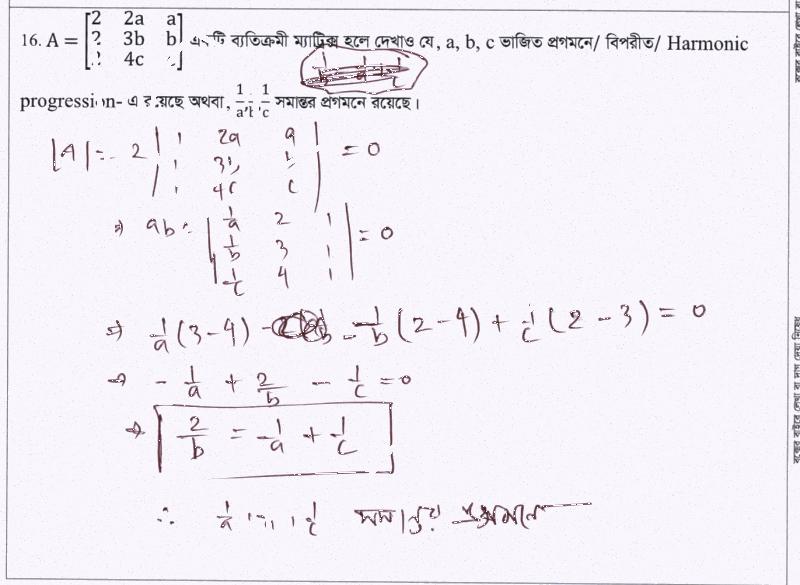 16. A = [2 2a a
? 3b b
? 4c ] এ টি ব্যতিক্রমী ম্যাট্রিক্স হলে দেখাও যে, a, b, c ভাজিত প্রগমনে/ বিপরীত/ Harmonic
progression- এ রয়েছে অথবা, 1/a, 1/c সমান্তর প্রগমনে রয়েছে।
|A| = 2 | 1 2a a | = 0
| 1 3b b |
| 1 4c c |
⇒ ab | 1/a 2 1 | = 0
| 1/b 3 1 |
| 1/c 4 1 |
⇒ 1/a (3-4) - 1/b (2-4) + 1/c (2-3) = 0
⇒ - 1/a + 2/b - 1/c = 0
⇒ 2/b = 1/a + 1/c
∴ 1/a , 1/c সমান্তর প্রগমনে